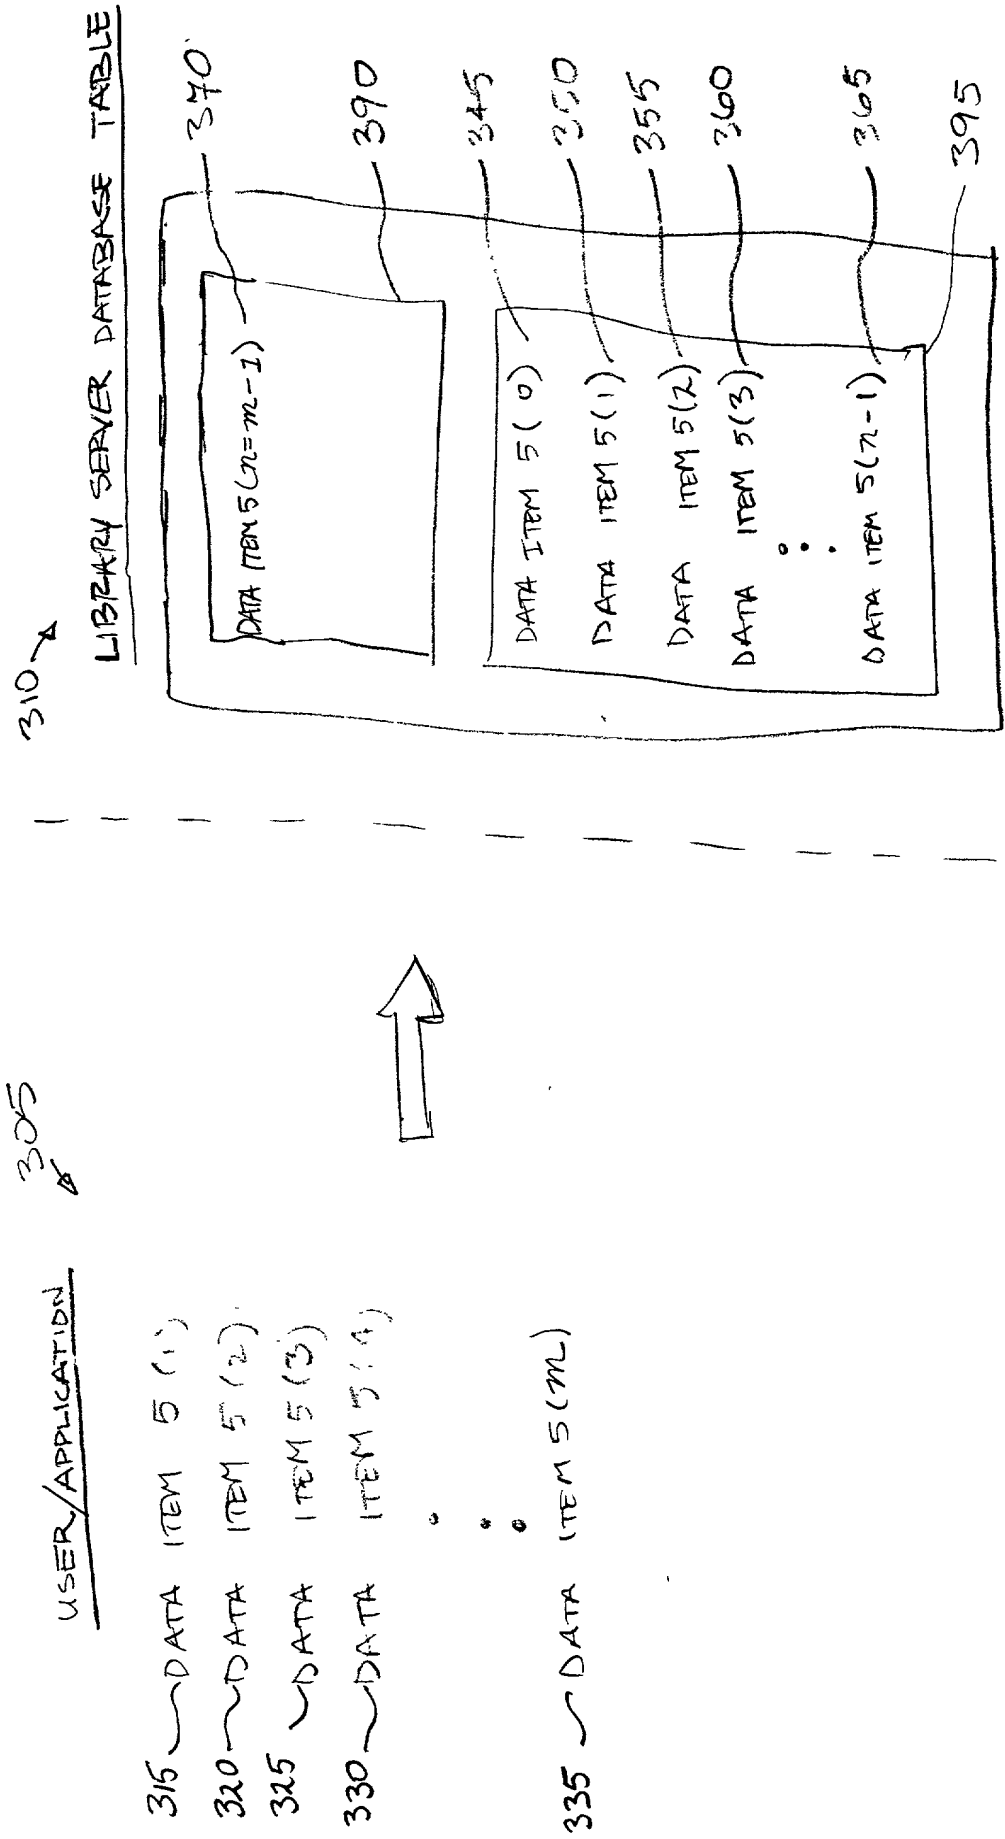 305
USER/APPLICATION
315 DATA ITEM 5 (1)
320 DATA ITEM 5 (2)
325 DATA ITEM 5 (3)
330 DATA ITEM 5 (4)
335 DATA ITEM 5 (m)
310
LIBRARY SERVER DATABASE TABLE
DATA ITEM 5 (n=m-1) 370
390
DATA ITEM 5 (0) 345
DATA ITEM 5 (1) 350
DATA ITEM 5 (2) 355
DATA ITEM 5 (3) 360
DATA ITEM 5 (n-1) 365
395